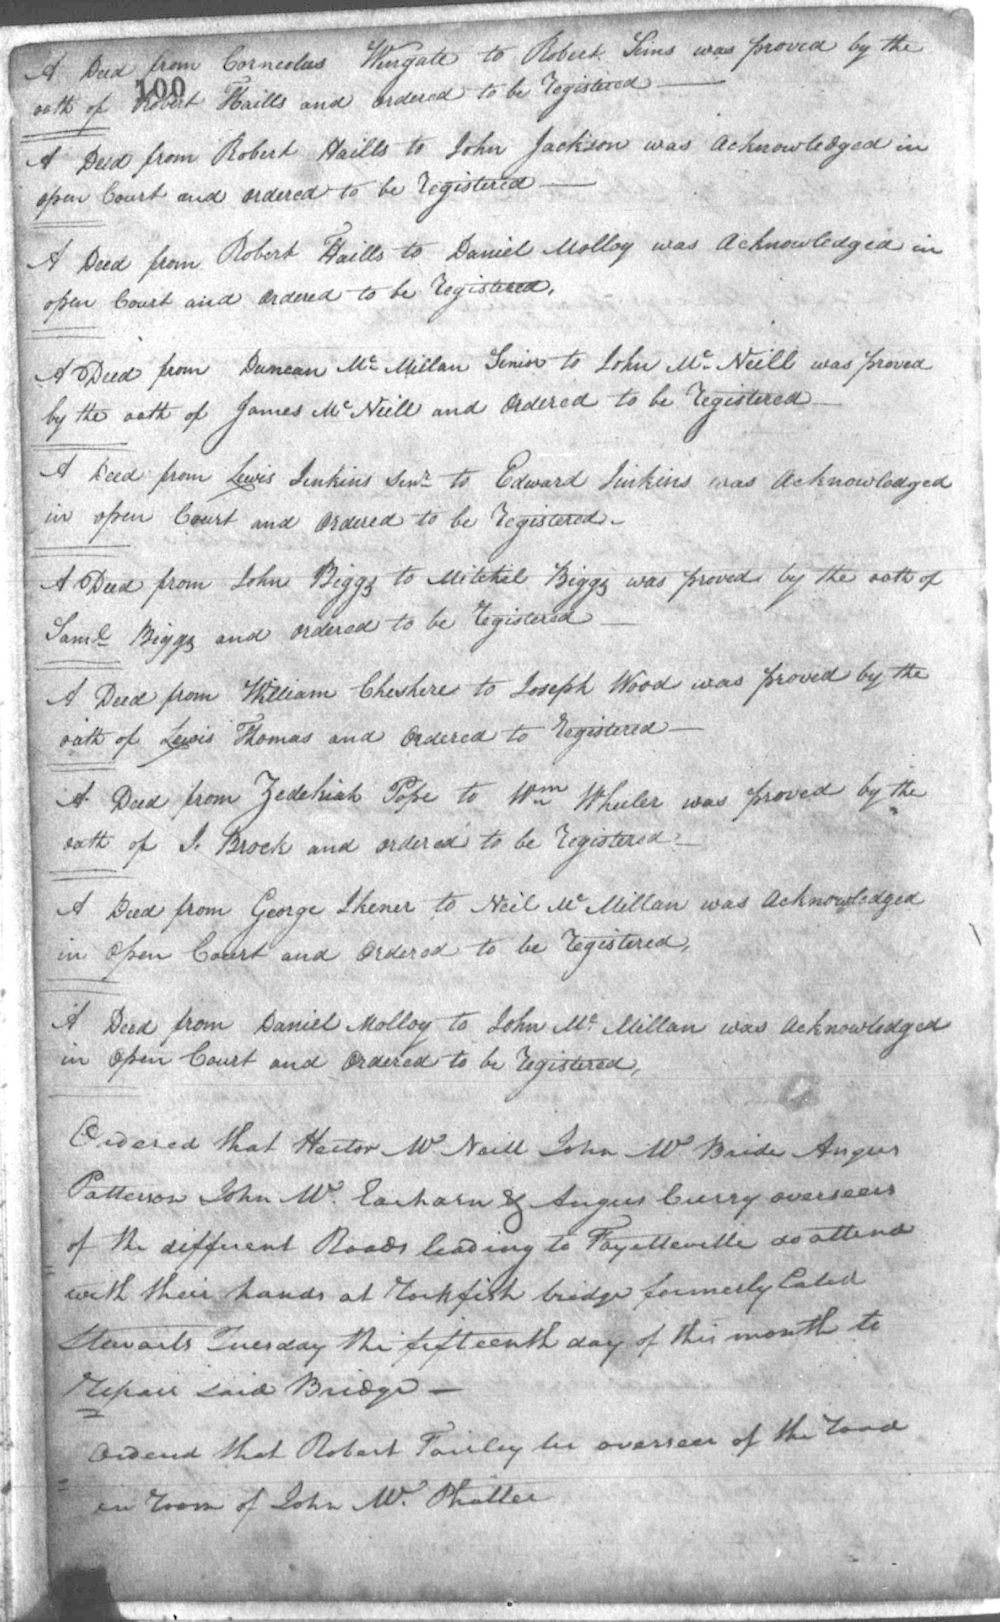 A Deed from Corneolus Wingate to Robert Sims was proved by the
100
oath of Robert Haills and ordered to be Registered
A Deed from Robert Haills to John Jackson was Acknowledged in
open Court and ordered to be Registered
A Deed from Robert Haills to Daniel Molloy was Acknowledged in
open Court and Ordered to be Registered,
A Deed from Duncan Mc Millan Senior to John Mc Neill was proved
by the oath of James Mc Neill and Ordered to be Registered
A Deed from Lewis Jenkins Senr to Edward Jinkins was Acknowledged
in open Court and Ordered to be Registered
A Deed from John Biggs to Mitchel Biggs was proved by the oath of
Saml Biggs and ordered to be Registered
A Deed from William Cheshire to Joseph Wood was proved by the
oath of Lewis Thomas and Ordered to Registered
A Deed from Zedekiah Pope to Wm Wheeler was proved by the
oath of J. Brock and ordered to be Registered
A Deed from George Ikener to Neil Mc Millan was Acknowledged
in Open Court and Ordered to be Registered,
A Deed from Daniel Molloy to John Mc Millan was Acknowledged
in Open Court and Ordered to be Registered,
Ordered that Hector Mc Neill John Mc Bride Angus
Patterson John Mc Eacharn & Angus Curry overseers
of the different Roads leading to Fayetteville do attend
with their hands at Rockfish bridge formerly Caled
Stewarts Tuesday the fifteenth day of this month to
Repair said Bridge
Ordered that Robert Fairley be overseer of the Road
in Room of John Mc Phatter